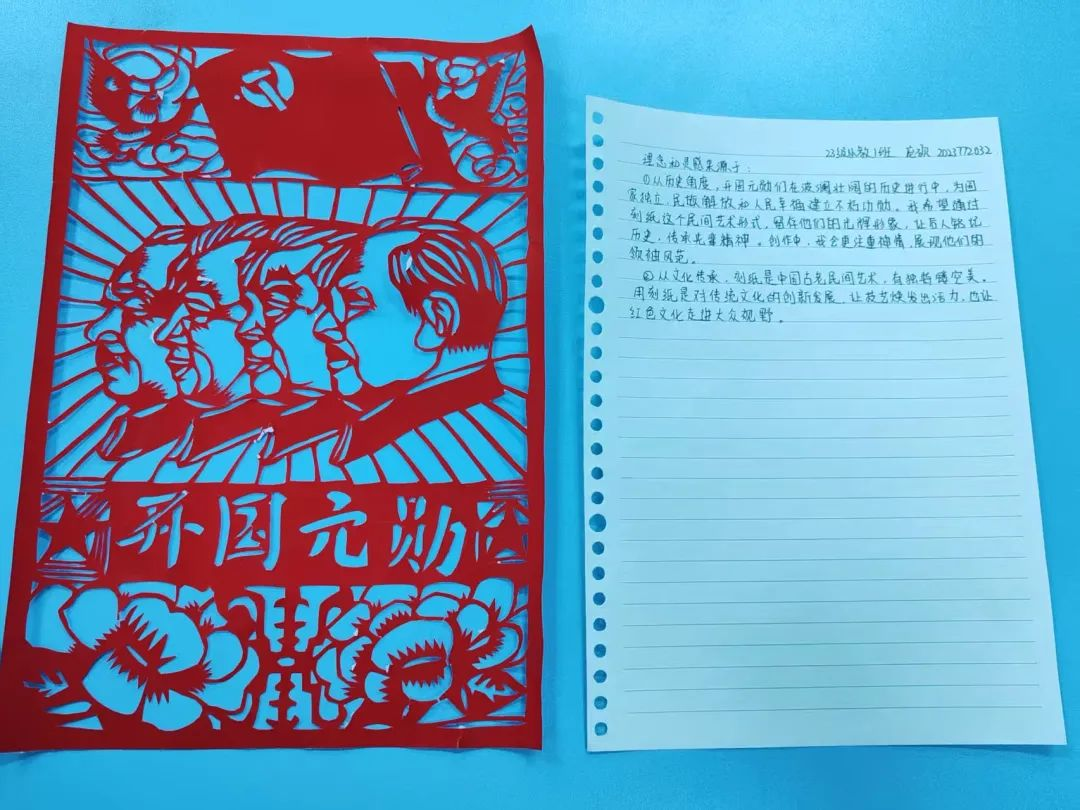 开国元勋
23级 1班 2023772032
理念和灵感来源于：
①从历史角度，开国元勋们在波澜壮阔的历史进行中，为国
家独立、民族解放和人民幸福建立不朽功勋。我希望通过
刻纸这个民间艺术形式，留存他们的光辉形象，让后人铭记
历史，传承先辈精神。创作中，我会更注重神情，展现他们的
领袖风范。
②从文化传承，刻纸是中国古老民间艺术，有独特镂空美。
用刻纸是对传统文化的创新发展，让技艺焕发出活力，也让
红色文化走进大众视野。